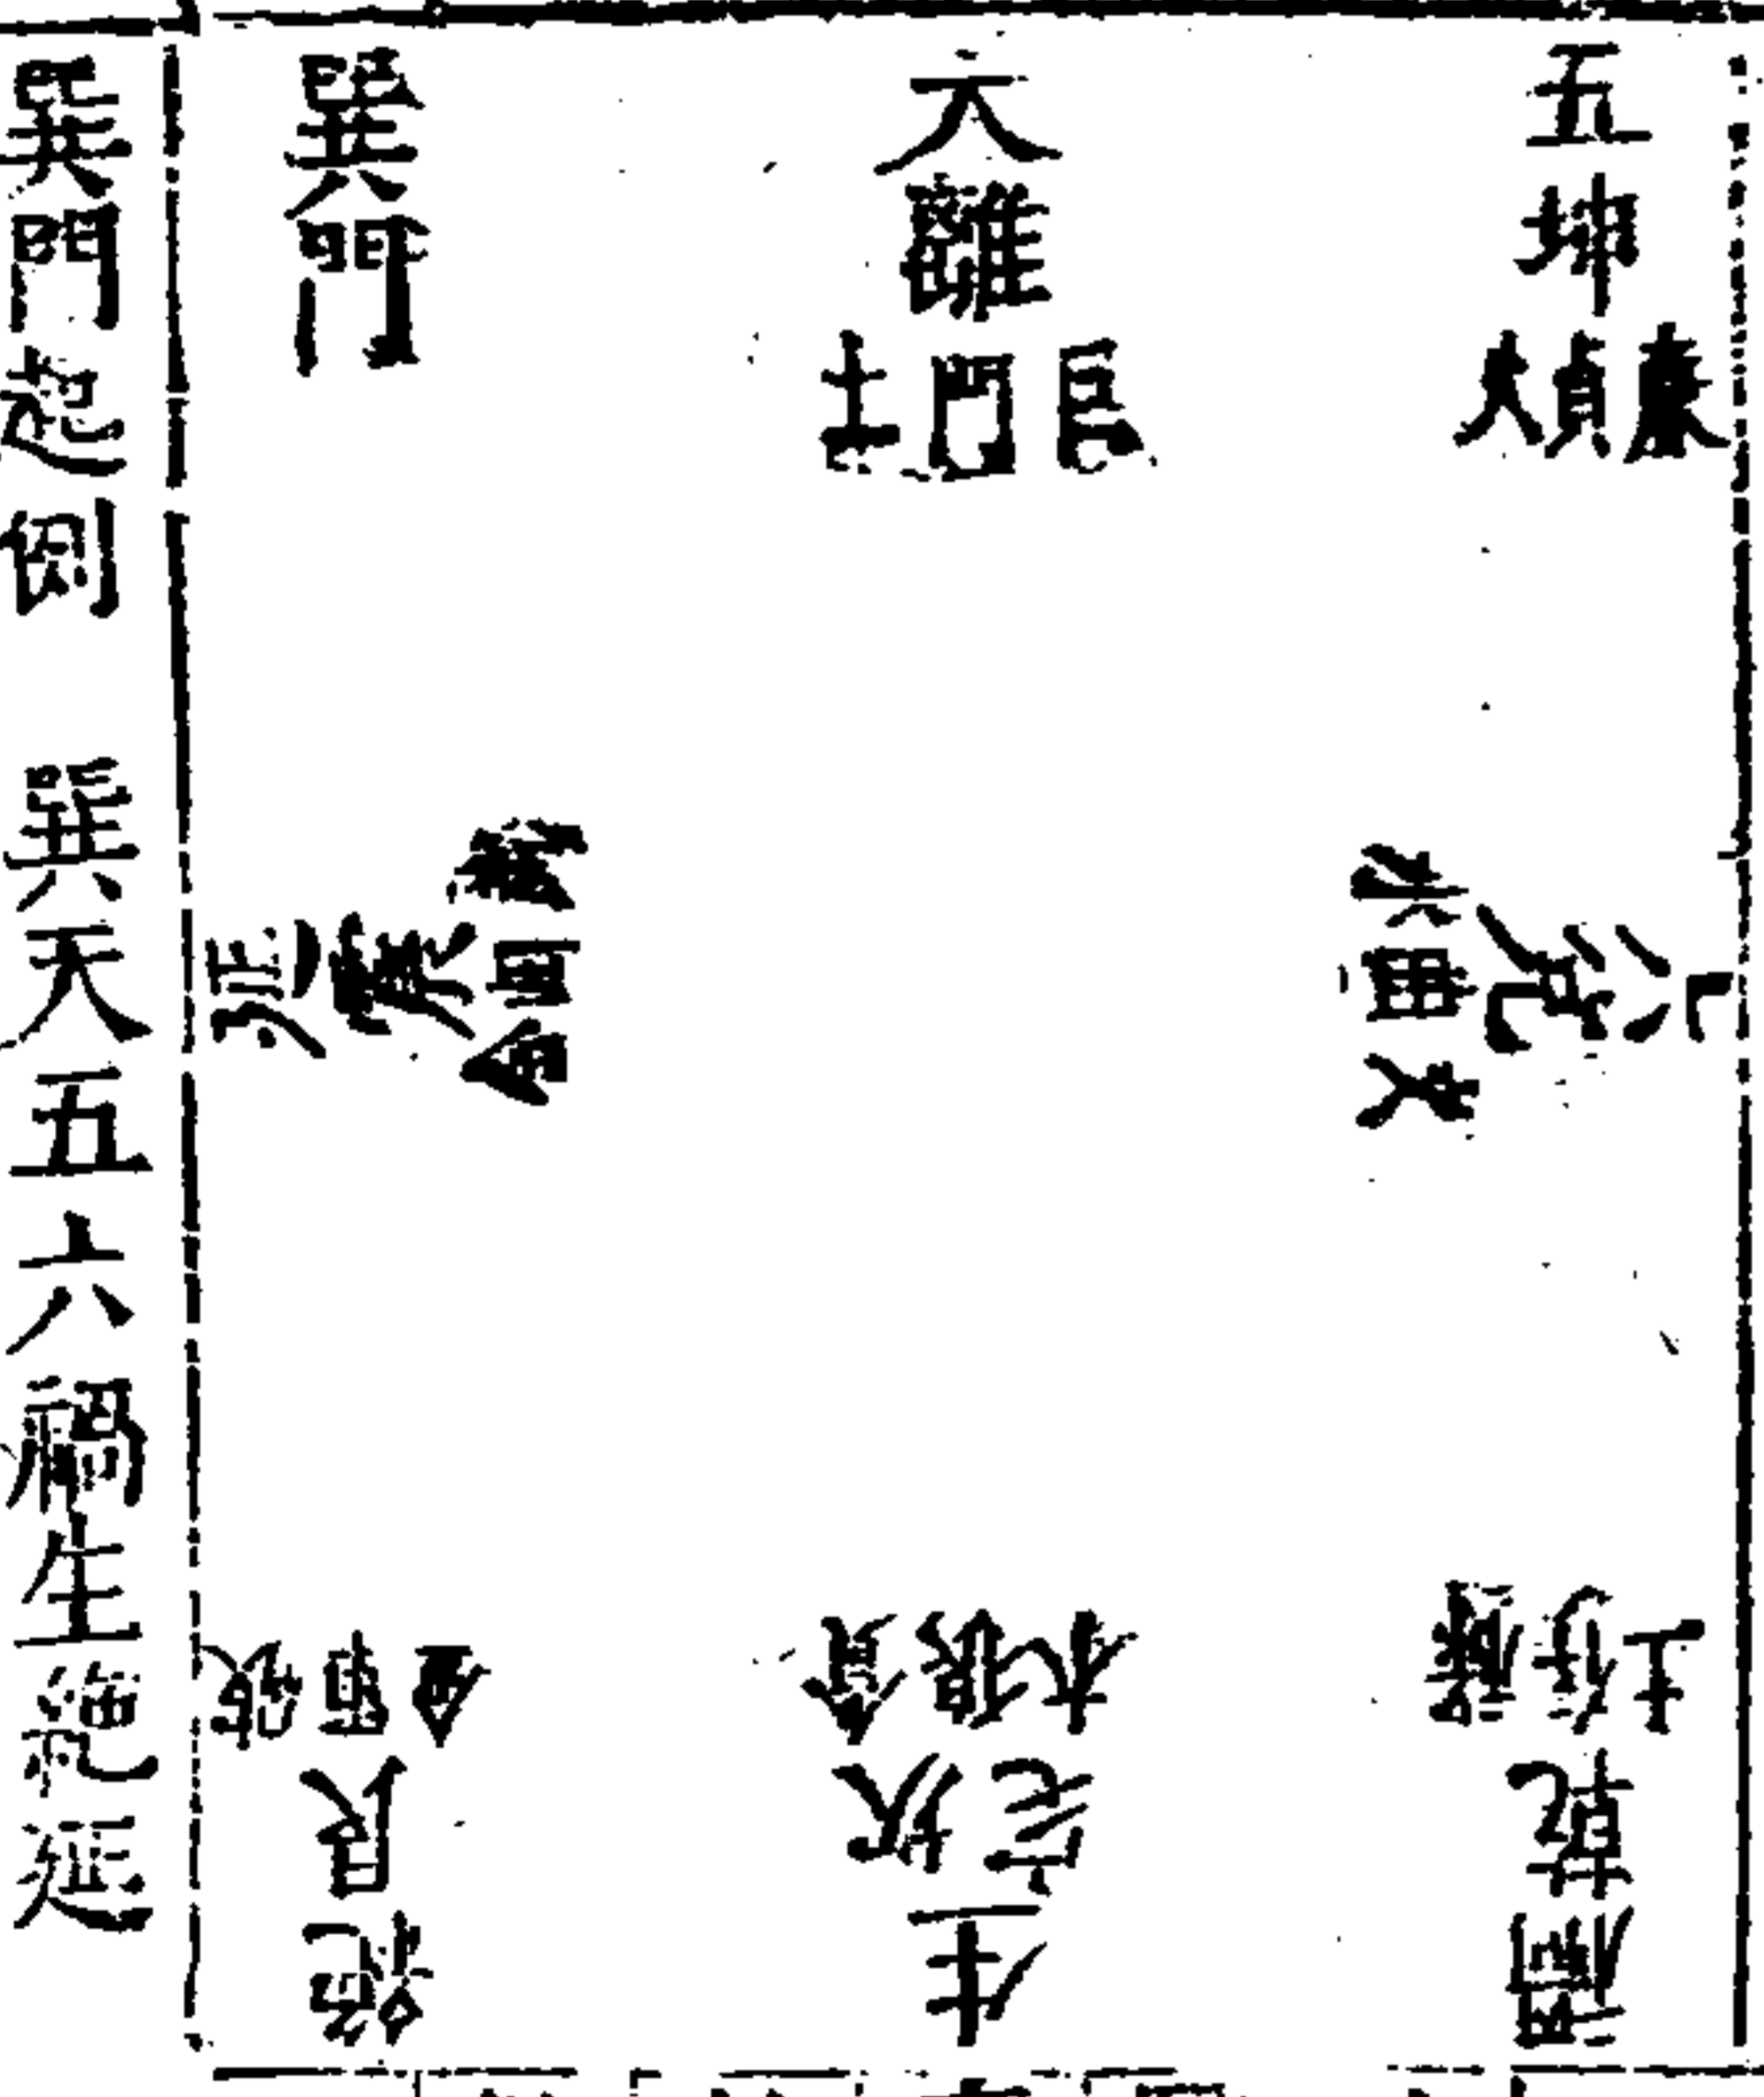 五坤
廉貞火
天離
巨門土
巽門
六兌
文曲水
延震
武曲金
禍乾
祿存土
生坎
貪狼木
絕艮
破軍金
巽門起例　巽天五六禍生絕延